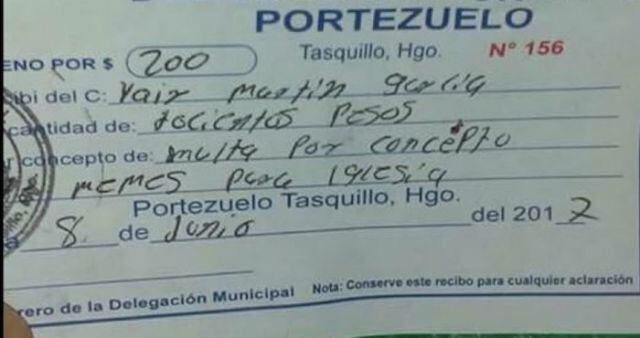 PORTEZUELO
Tasquillo, Hgo. N° 156
ENO POR $ 200
ibi del C: Yair Martin Garcia
cantidad de: docientos Pesos
r concepto de: multa Por concepto
MEMES para Iglesia
Portezuelo Tasquillo, Hgo.
8 de Junio del 2017
rero de la Delegación Municipal Nota: Conserve este recibo para cualquier aclaración